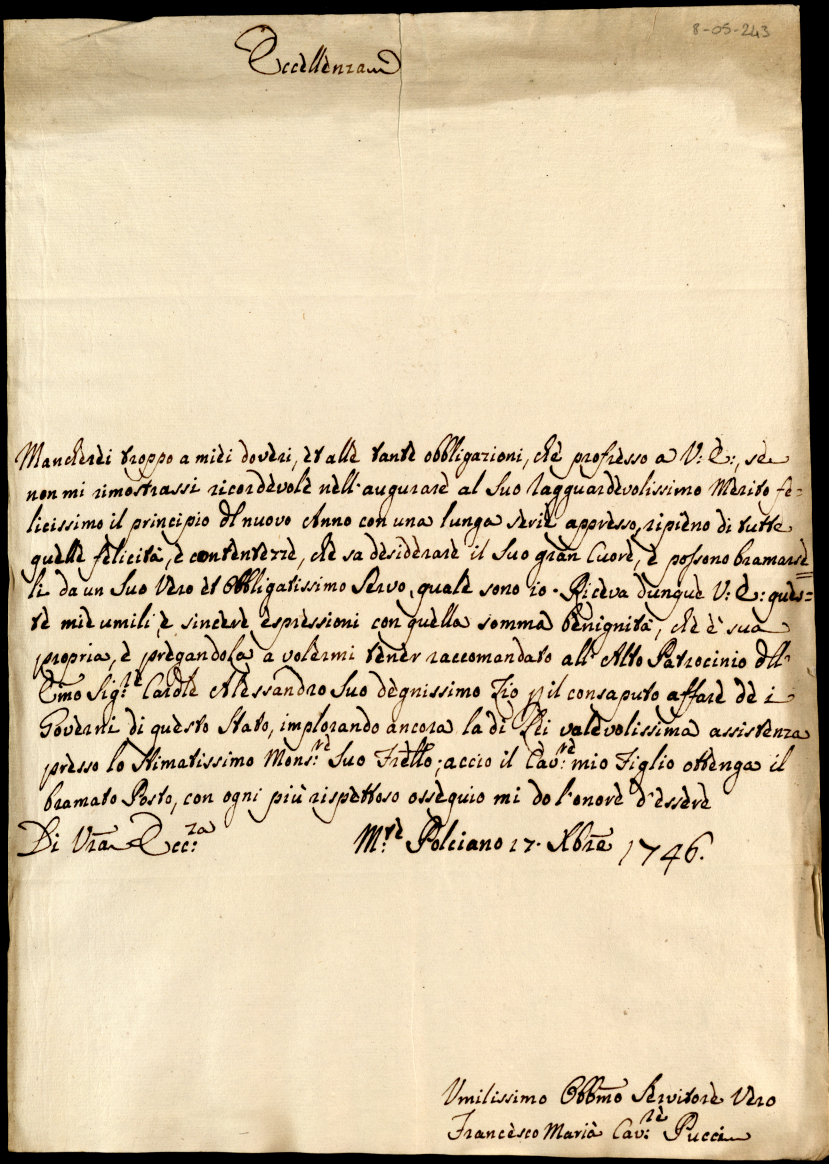 8-05-243
Eccellenza
Mancherei troppo a miei doveri, et alle tante obbligazioni, che professo a V: E:, se
non mi rimostrassi ricordevole nell'augurare al Suo ragguardevolissimo Merito fe=
licissimo il principio dl nuovo Anno con una lunga serie appresso, ripieno di tutte
quelle felicità, e contentezze, che sa desiderare il Suo gran Cuore, e possono bramarse=
li da un Suo Vero et Obbligatissimo Servo, quale sono io. Riceva dunque V: E: ques=
te mie umili e sincere espressioni con quella somma benignità, che è sua
propria, e pregandola a volermi tener raccomandato all'Alto Patrocinio dll'
Emo Sig:re Cardle Alessandro Suo degnissimo Zio p il consaputo affare de i
Governi di questo Stato, implorando ancora la di Lei valevolissima assistenza
presso lo Stimatissimo Mons:re Suo Frello; accio il Cav:re mio Figlio ottenga il
bramato Posto, con ogni più rispettoso ossequio mi do l'onore d'essere
Di Vra Ecc:za M:te Polciano 17. Xbre 1746.
Umilissimo Obbmo Servitore Vero
Francesco Maria Cav:re Pucci